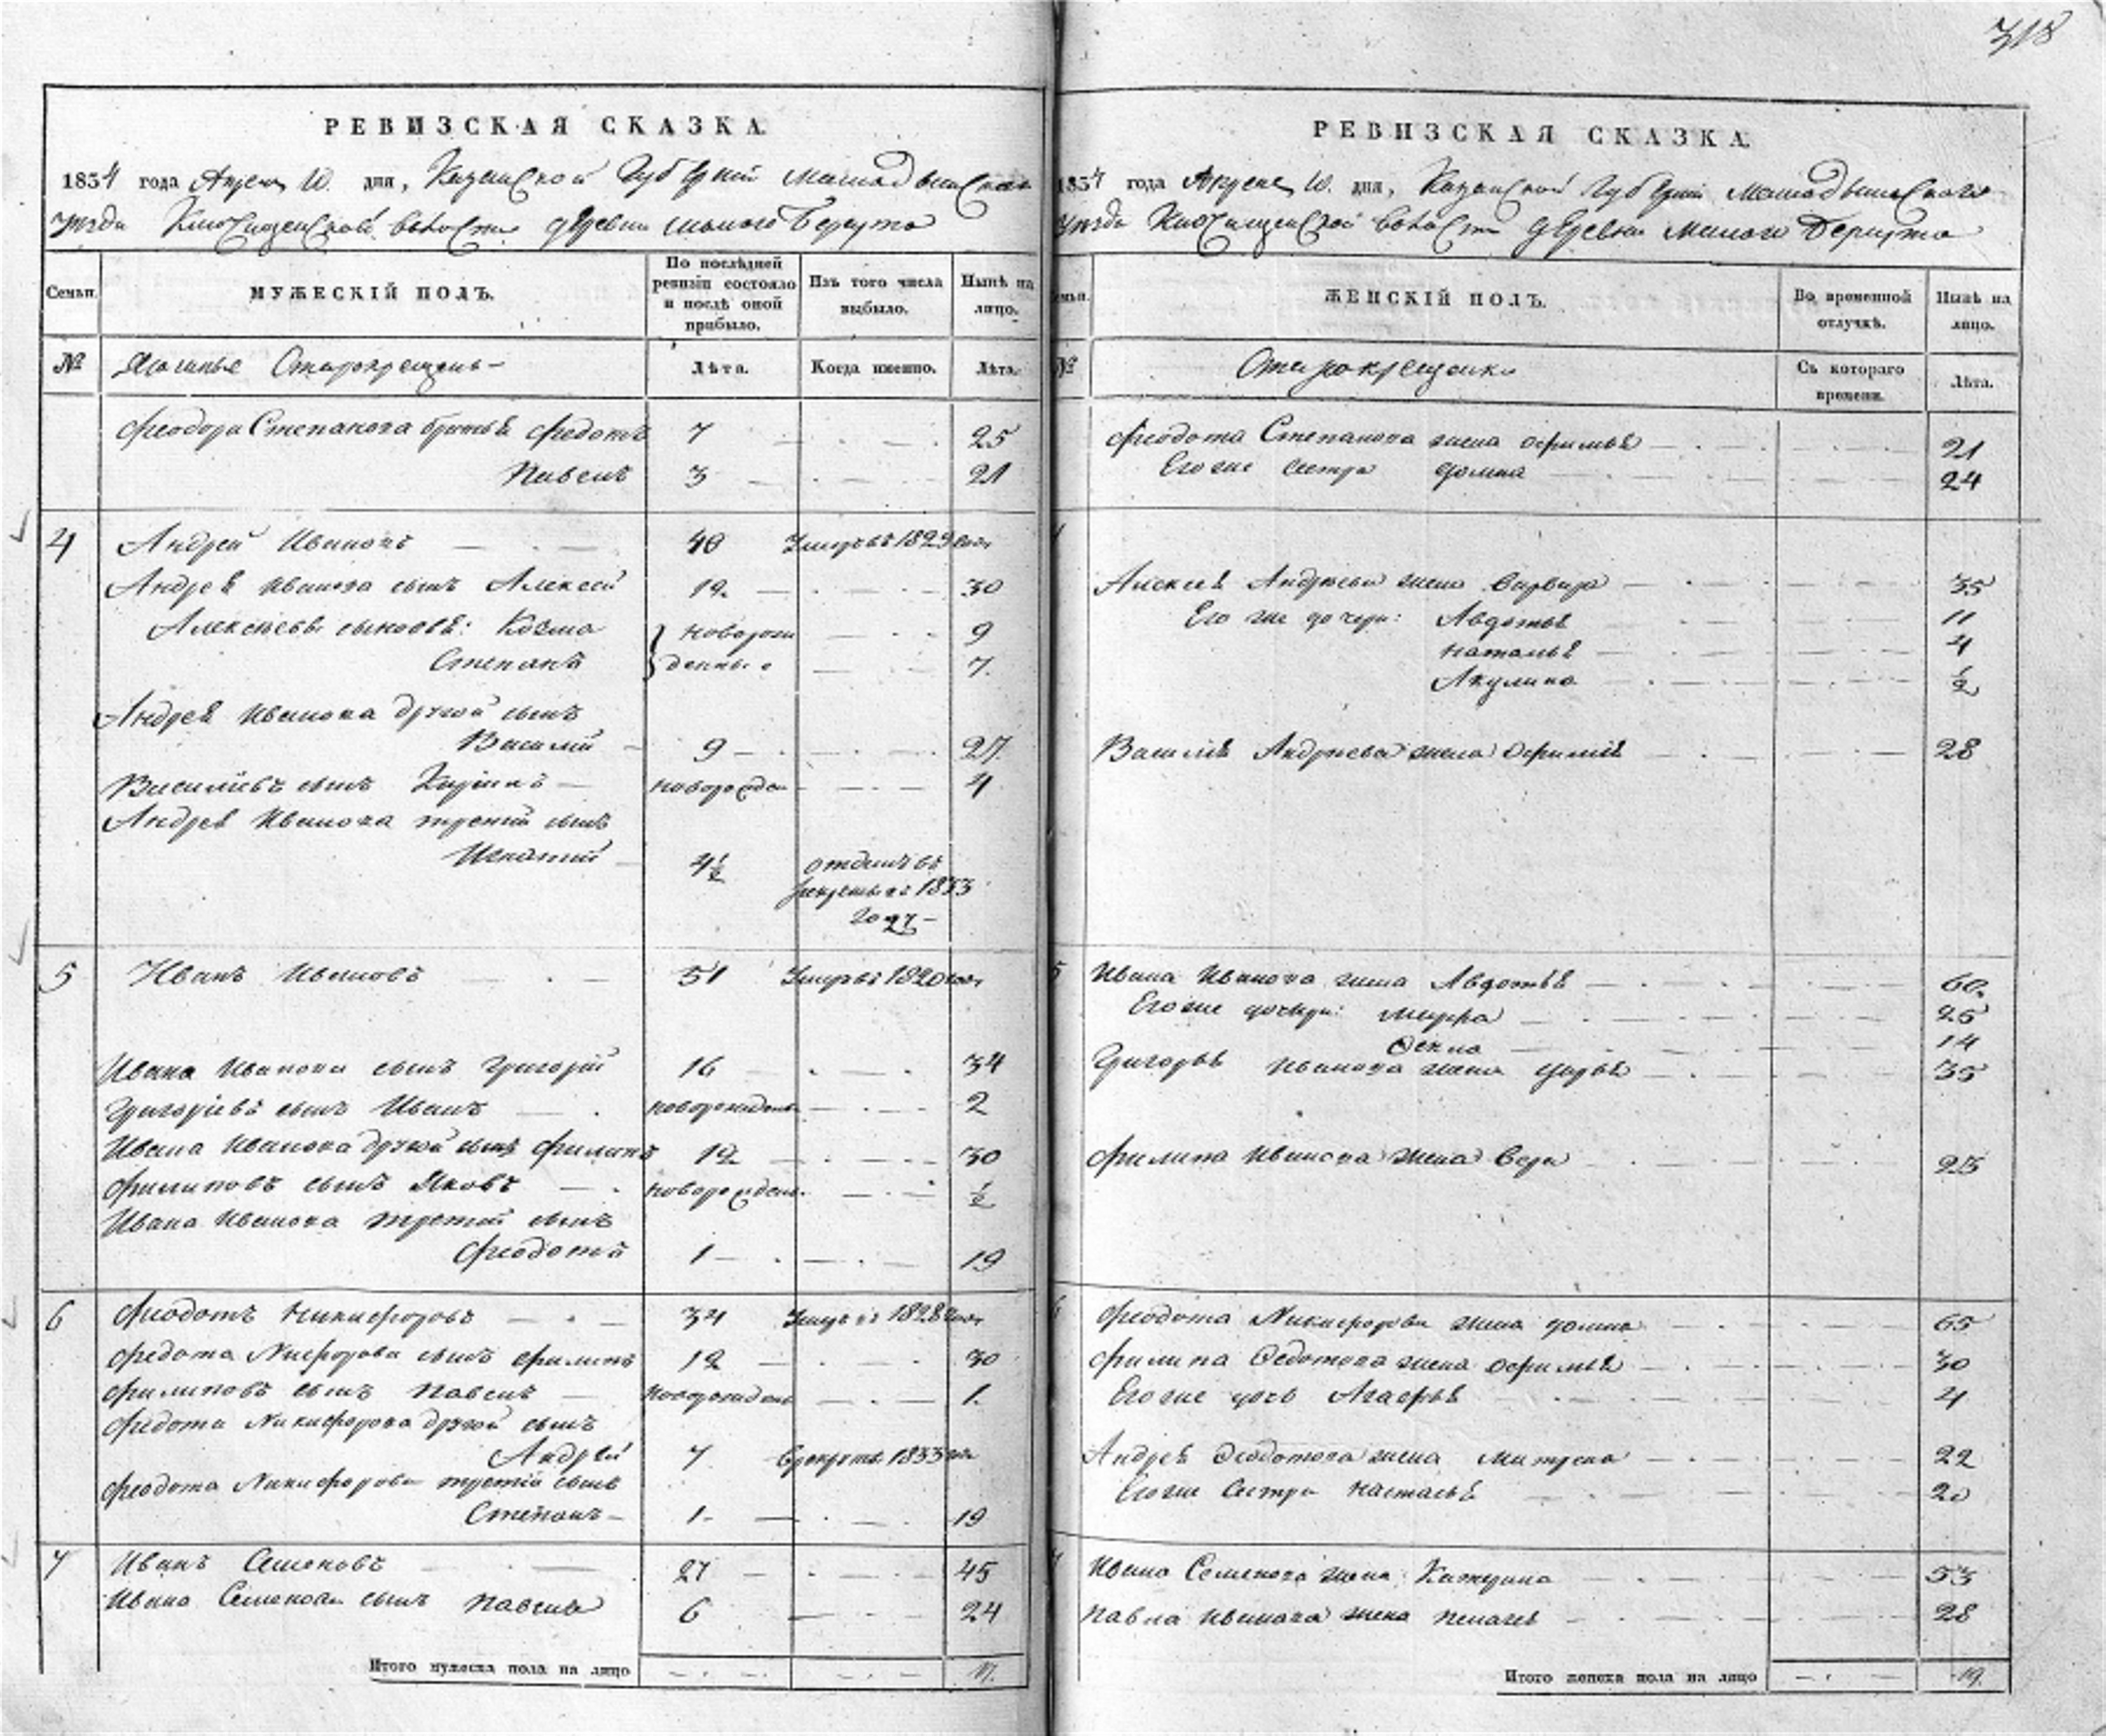 318
РЕВИЗСКАЯ СКАЗКА.
1834 года Апреля 10. дня, Казанской Губернiи Мамадышскаго
уезда волости деревни малого
Семьи.
МУЖЕСКIЙ ПОЛЪ.
По послѣдней ревизiи состояло и послѣ оной прибыло.
Изъ того числа выбыло.
Нынѣ на лицо.
№ Старокрещены
Лѣта.
Когда именно.
Лѣта.
Феодора Степанова братья Федотъ 7 25
Павелъ 3 21
4 Андрей Ивановъ 40 Умеръ въ 1829 году
Андрея Иванова сынъ Алексей 12 30
Алексеевы сыновья: Козма новорож 9
Степанъ денные 7
Андрея Иванова другой сынъ
Василий 9 27
Васильевъ сынъ новорожден 4
Андрея Иванова третий сынъ
Игнатий 4½ отданъ въ
рекруты въ 1833
году
5 Иванъ Ивановъ 51 Умеръ въ 1820 году
Ивана Иванова сынъ Григорiй 16 34
Григорiевъ сынъ Иванъ новорожденъ 2
Ивана Иванова другой сынъ Филипъ 12 30
Филиповъ сынъ Яковъ новорожденъ ½
Ивана Иванова третий сынъ
Феодотъ 1 19
6 Феодотъ Никифоровъ 34 Умеръ въ 1828 году
Федота сынъ Филипъ 12 30
Филиповъ сынъ Павелъ новорожденъ 1
Федота Никифорова другой сынъ
Андрей 7 В рекруты 1833 года
Феодота Никифорова третiй сынъ
Степанъ 1 19
7 Иванъ Семеновъ 27 45
Ивана Семенова сынъ Павелъ 6 24
Итого мужеска пола на лицо 17.
РЕВИЗСКАЯ СКАЗКА.
1834 года Апреля 10. дня, Казанской Губернiи Мамадышскаго
уезда волости деревни Малого
Семьи.
ЖЕНСКIЙ ПОЛЪ.
Во временной отлучкѣ.
Нынѣ на лицо.
№ Старокрещенки
Съ котораго времени.
Лѣта.
Феодота Степанова жена Офимья 21
Его же сестра Домна 24
4
Алексея Андреева жена Варвара 35
Его же дочери: Авдотья 11
Наталья 4
Акулина ½
Василья Андреева жена Офимья 28
5 Ивана Иванова жена Авдотья 60
Его же дочери: Марфа 25
14
Григорья Иванова жена Дарья 35
Филипа Иванова жена Вера 25
6 Феодота Никифорова жена Домна 65
Филипа Федотова жена Офимья 30
Его же дочь Агафья 4
Андрея Феодотова жена Матрена 22
Его же сестра Настасья 20
7 Ивана Семенова жена Катерина 53
Павла Иванова жена Пелагея 28
Итого женска пола на лицо 19.